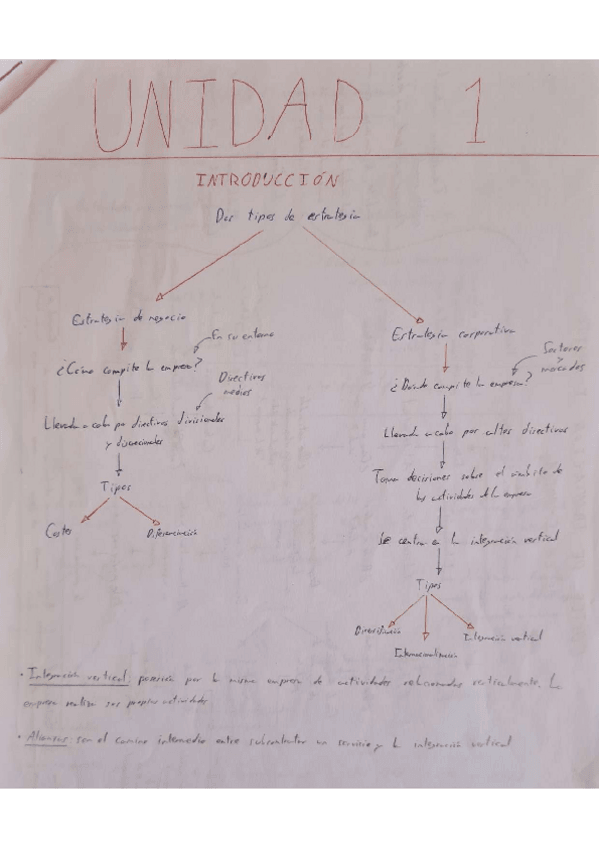 UNIDAD 1
INTRODUCCIÓN
Dos tipos de estrategia
Estrategia de negocio
En su entorno
¿Cómo compite la empresa?
Directivos
medios
Llevada a cabo por directivos divisionales
y
Tipos
Costes
Diferenciación
Estrategia corporativa
Sectores
y
mercados
¿Dónde compite la empresa?
Llevada a cabo por altos directivos
Toman decisiones sobre el ámbito de
las actividades de la empresa
Se centra en la integración vertical
Tipos
Diversificación
Internacionalización
Integración vertical
· Integración vertical: posesión por la misma empresa de actividades relacionadas verticalmente. La
empresa realiza sus propias actividades
· Alianzas: son el camino intermedio entre subcontratar un servicio y la integración vertical